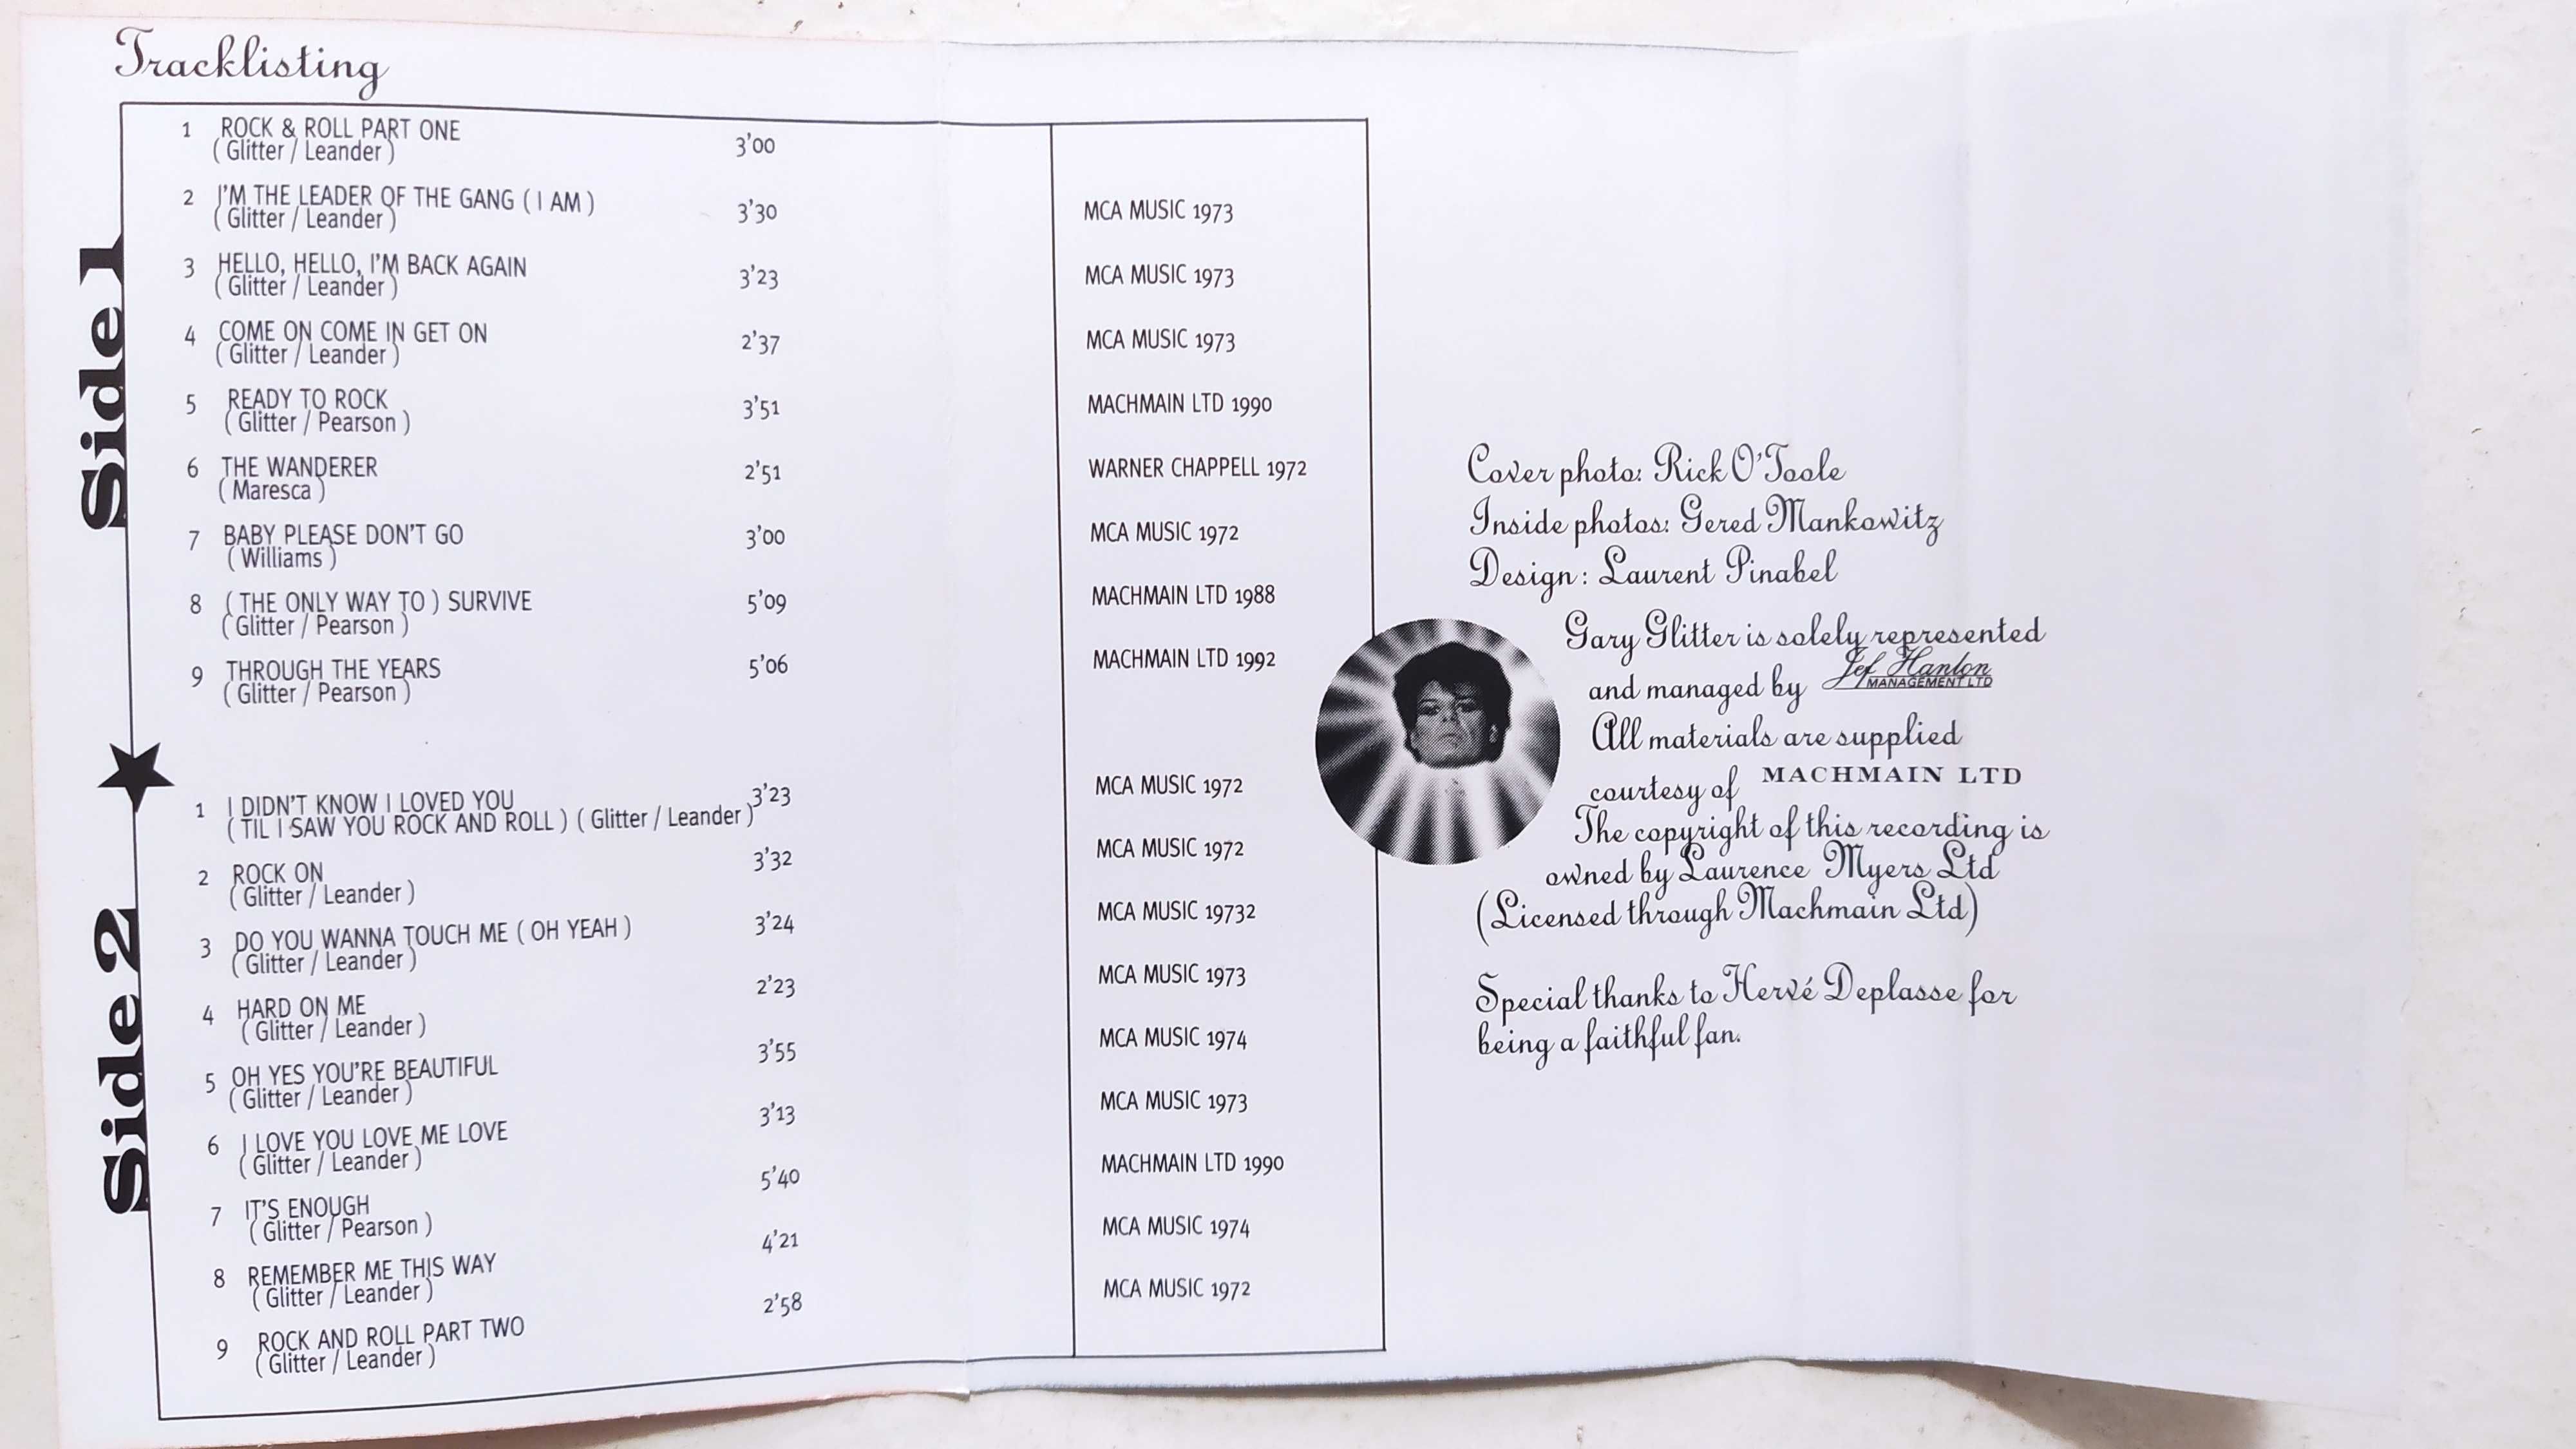 Tracklisting
Side 1
1 ROCK & ROLL PART ONE 3'00
( Glitter / Leander )
2 I'M THE LEADER OF THE GANG ( I AM ) 3'30 MCA MUSIC 1973
( Glitter / Leander )
3 HELLO, HELLO, I'M BACK AGAIN 3'23 MCA MUSIC 1973
( Glitter / Leander )
4 COME ON COME IN GET ON 2'37 MCA MUSIC 1973
( Glitter / Leander )
5 READY TO ROCK 3'51 MACHMAIN LTD 1990
( Glitter / Pearson )
6 THE WANDERER 2'51 WARNER CHAPPELL 1972
( Maresca )
7 BABY PLEASE DON'T GO 3'00 MCA MUSIC 1972
( Williams )
8 ( THE ONLY WAY TO ) SURVIVE 5'09 MACHMAIN LTD 1988
( Glitter / Pearson )
9 THROUGH THE YEARS 5'06 MACHMAIN LTD 1992
( Glitter / Pearson )
Side 2
1 I DIDN'T KNOW I LOVED YOU 3'23 MCA MUSIC 1972
( TIL I SAW YOU ROCK AND ROLL ) ( Glitter / Leander )
2 ROCK ON 3'32 MCA MUSIC 1972
( Glitter / Leander )
3 DO YOU WANNA TOUCH ME ( OH YEAH ) 3'24 MCA MUSIC 19732
( Glitter / Leander )
4 HARD ON ME 2'23 MCA MUSIC 1973
( Glitter / Leander )
5 OH YES YOU'RE BEAUTIFUL 3'55 MCA MUSIC 1974
( Glitter / Leander )
6 I LOVE YOU LOVE ME LOVE 3'13 MCA MUSIC 1973
( Glitter / Leander )
7 IT'S ENOUGH 5'40 MACHMAIN LTD 1990
( Glitter / Pearson )
8 REMEMBER ME THIS WAY 4'21 MCA MUSIC 1974
( Glitter / Leander )
9 ROCK AND ROLL PART TWO 2'58 MCA MUSIC 1972
( Glitter / Leander )
Cover photo: Rick O'Toole
Inside photos: Gered Mankowitz
Design : Laurent Pinabel
Gary Glitter is solely represented
and managed by Jef Hanlon MANAGEMENT LTD
All materials are supplied
courtesy of MACHMAIN LTD
The copyright of this recording is
owned by Laurence Myers Ltd
(Licensed through Machmain Ltd)
Special thanks to Hervé Deplasse for
being a faithful fan.